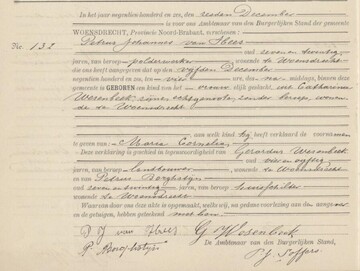 In het jaar negentienhonderd en zes, den zesden December
verscheen voor ons Ambtenaar van den Burgerlijken Stand der gemeente
WOENSDRECHT, Provincie Noord-Brabant,
No. 132
Petrus Johannes van Hees
oud zeven en twintig
jaren, van beroep polderwerker wonende te Woensdrecht
die ons heeft aangegeven dat op den vijfden December
dezes jaars, des middags, binnen deze
gemeente is GEBOREN een kind van het vrouwelijk geslacht, uit Catharina
Wesenbeek zijne echtgenoote, zonder beroep, wonen
de te Woensdrecht
aan welk kind hij heeft verklaard de voornamen
te geven van Maria Cornelia
Deze verklaring is geschied in tegenwoordigheid van Gerardus Wesenbeek
oud
jaren, van beroep landbouwer wonende te Woensdrecht
en van Petrus
oud zeven en
jaren, van beroep wonende
te Woensdrecht
Waarvan door ons deze akte is opgemaakt, welke wij, na voorlezing aan den aangever
en de getuigen, hebben geteekend met hen.
P J van Hees G Wesenbeek
P. De Ambtenaar van den Burgerlijken Stand,